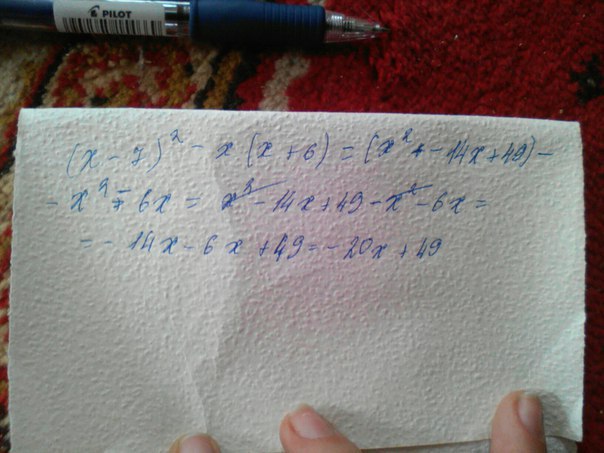 PILOT
(x - 7)² - x (x + 6) = (x² - 14x + 49) -
- x² - 6x = x² - 14x + 49 - x² - 6x =
= - 14x - 6x + 49 = - 20x + 49